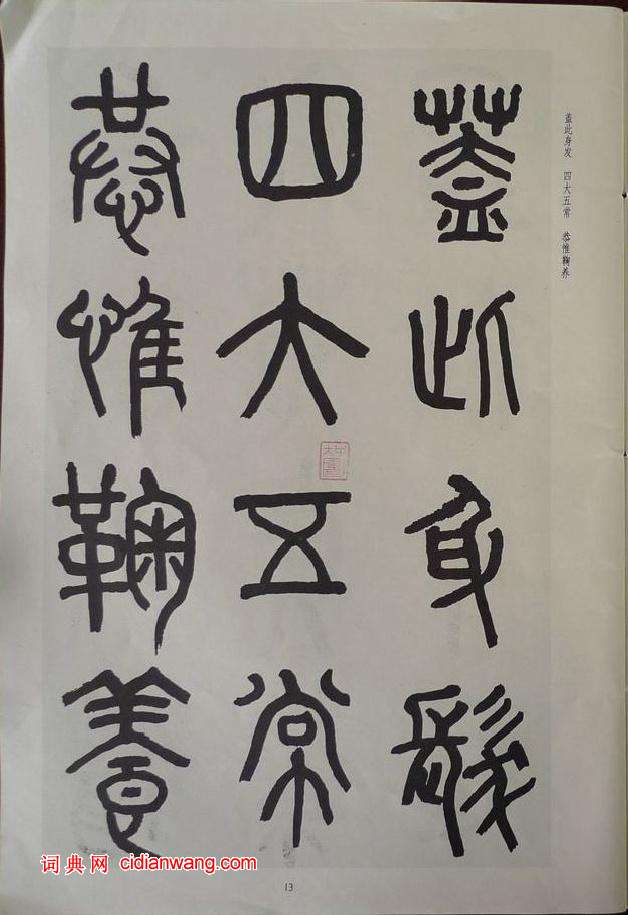 盖此身发 四大五常 恭惟鞠养
蓋此身髮
四大五常
恭惟鞠養
13
词典网 cidianwang.com